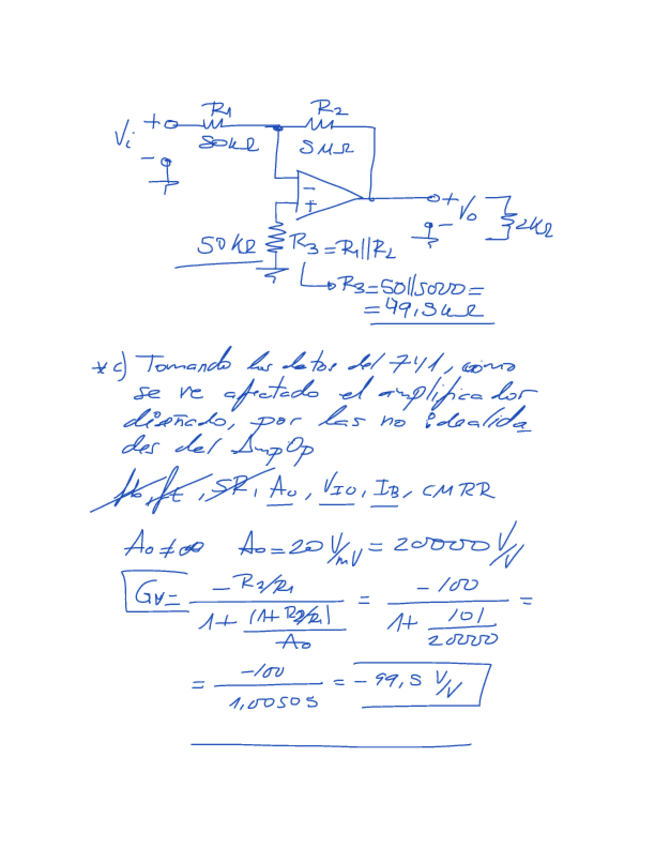 R1 R2
Vi + 50kΩ 5MΩ
-
- +
+ Vo 2kΩ
-
50kΩ R3=R1||R2
R3=50||5000=
=49,5kΩ
*c) Tomando los datos del 741, como
se ve afectado el amplificador
diseñado, por las no idealida
des del AmpOp
SR, Ao, VIO, IB, CMRR
Ao≠∞ Ao=20 V/mV = 20000 V/V
Gv= -R2/R1 / 1+ (1+R2/R1)/Ao = -100 / 1+ 101/20000 =
= -100 / 1,00505 = -99,5 V/V